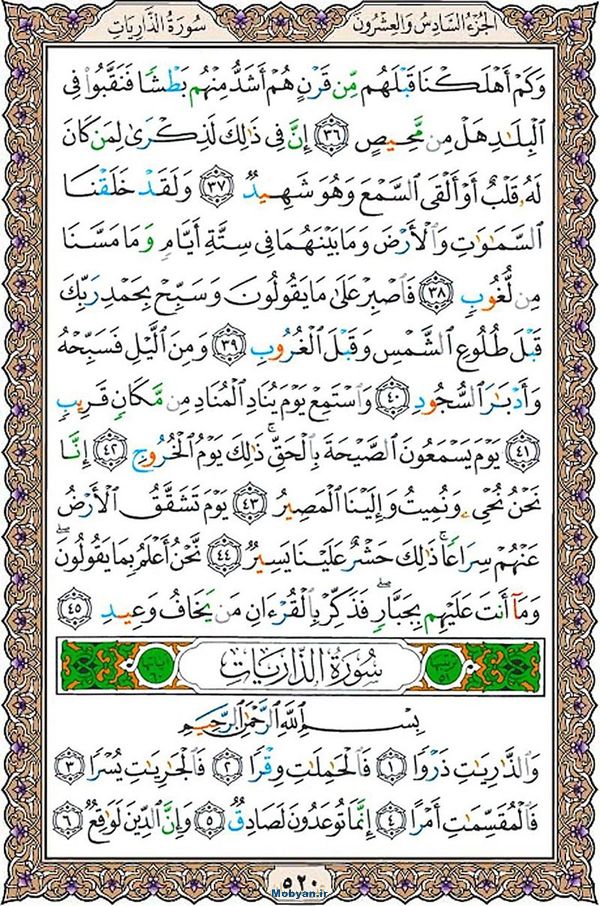 الجزء السادس والعشرون
سورة الذاريات
وَكَمْ أَهْلَكْنَا قَبْلَهُم مِّن قَرْنٍ هُمْ أَشَدُّ مِنْهُم بَطْشًا فَنَقَّبُوا۟ فِى
ٱلْبِلَٰدِ هَلْ مِن مَّحِيصٍ ٣٦ إِنَّ فِى ذَٰلِكَ لَذِكْرَىٰ لِمَن كَانَ
لَهُۥ قَلْبٌ أَوْ أَلْقَى ٱلسَّمْعَ وَهُوَ شَهِيدٌ ٣٧ وَلَقَدْ خَلَقْنَا
ٱلسَّمَٰوَٰتِ وَٱلْأَرْضَ وَمَا بَيْنَهُمَا فِى سِتَّةِ أَيَّامٍ وَمَا مَسَّنَا
مِن لُّغُوبٍ ٣٨ فَٱصْبِرْ عَلَىٰ مَا يَقُولُونَ وَسَبِّحْ بِحَمْدِ رَبِّكَ
قَبْلَ طُلُوعِ ٱلشَّمْسِ وَقَبْلَ ٱلْغُرُوبِ ٣٩ وَمِنَ ٱلَّيْلِ فَسَبِّحْهُ
وَأَدْبَٰرَ ٱلسُّجُودِ ٤٠ وَٱسْتَمِعْ يَوْمَ يُنَادِ ٱلْمُنَادِ مِن مَّكَانٍ قَرِيبٍ
٤١ يَوْمَ يَسْمَعُونَ ٱلصَّيْحَةَ بِٱلْحَقِّ ۚ ذَٰلِكَ يَوْمُ ٱلْخُرُوجِ ٤٢ إِنَّا
نَحْنُ نُحْىِۦ وَنُمِيتُ وَإِلَيْنَا ٱلْمَصِيرُ ٤٣ يَوْمَ تَشَقَّقُ ٱلْأَرْضُ
عَنْهُمْ سِرَاعًا ۚ ذَٰلِكَ حَشْرٌ عَلَيْنَا يَسِيرٌ ٤٤ نَّحْنُ أَعْلَمُ بِمَا يَقُولُونَ ۖ
وَمَآ أَنتَ عَلَيْهِم بِجَبَّارٍ ۖ فَذَكِّرْ بِٱلْقُرْءَانِ مَن يَخَافُ وَعِيدِ ٤٥
سورة الذاريات
بِسْمِ ٱللَّهِ ٱلرَّحْمَٰنِ ٱلرَّحِيمِ
وَٱلذَّٰرِيَٰتِ ذَرْوًا ١ فَٱلْحَٰمِلَٰتِ وِقْرًا ٢ فَٱلْجَٰرِيَٰتِ يُسْرًا ٣
فَٱلْمُقَسِّمَٰتِ أَمْرًا ٤ إِنَّمَا تُوعَدُونَ لَصَادِقٌ ٥ وَإِنَّ ٱلدِّينَ لَوَٰقِعٌ ٦
٥٢٠
Mobyan.ir